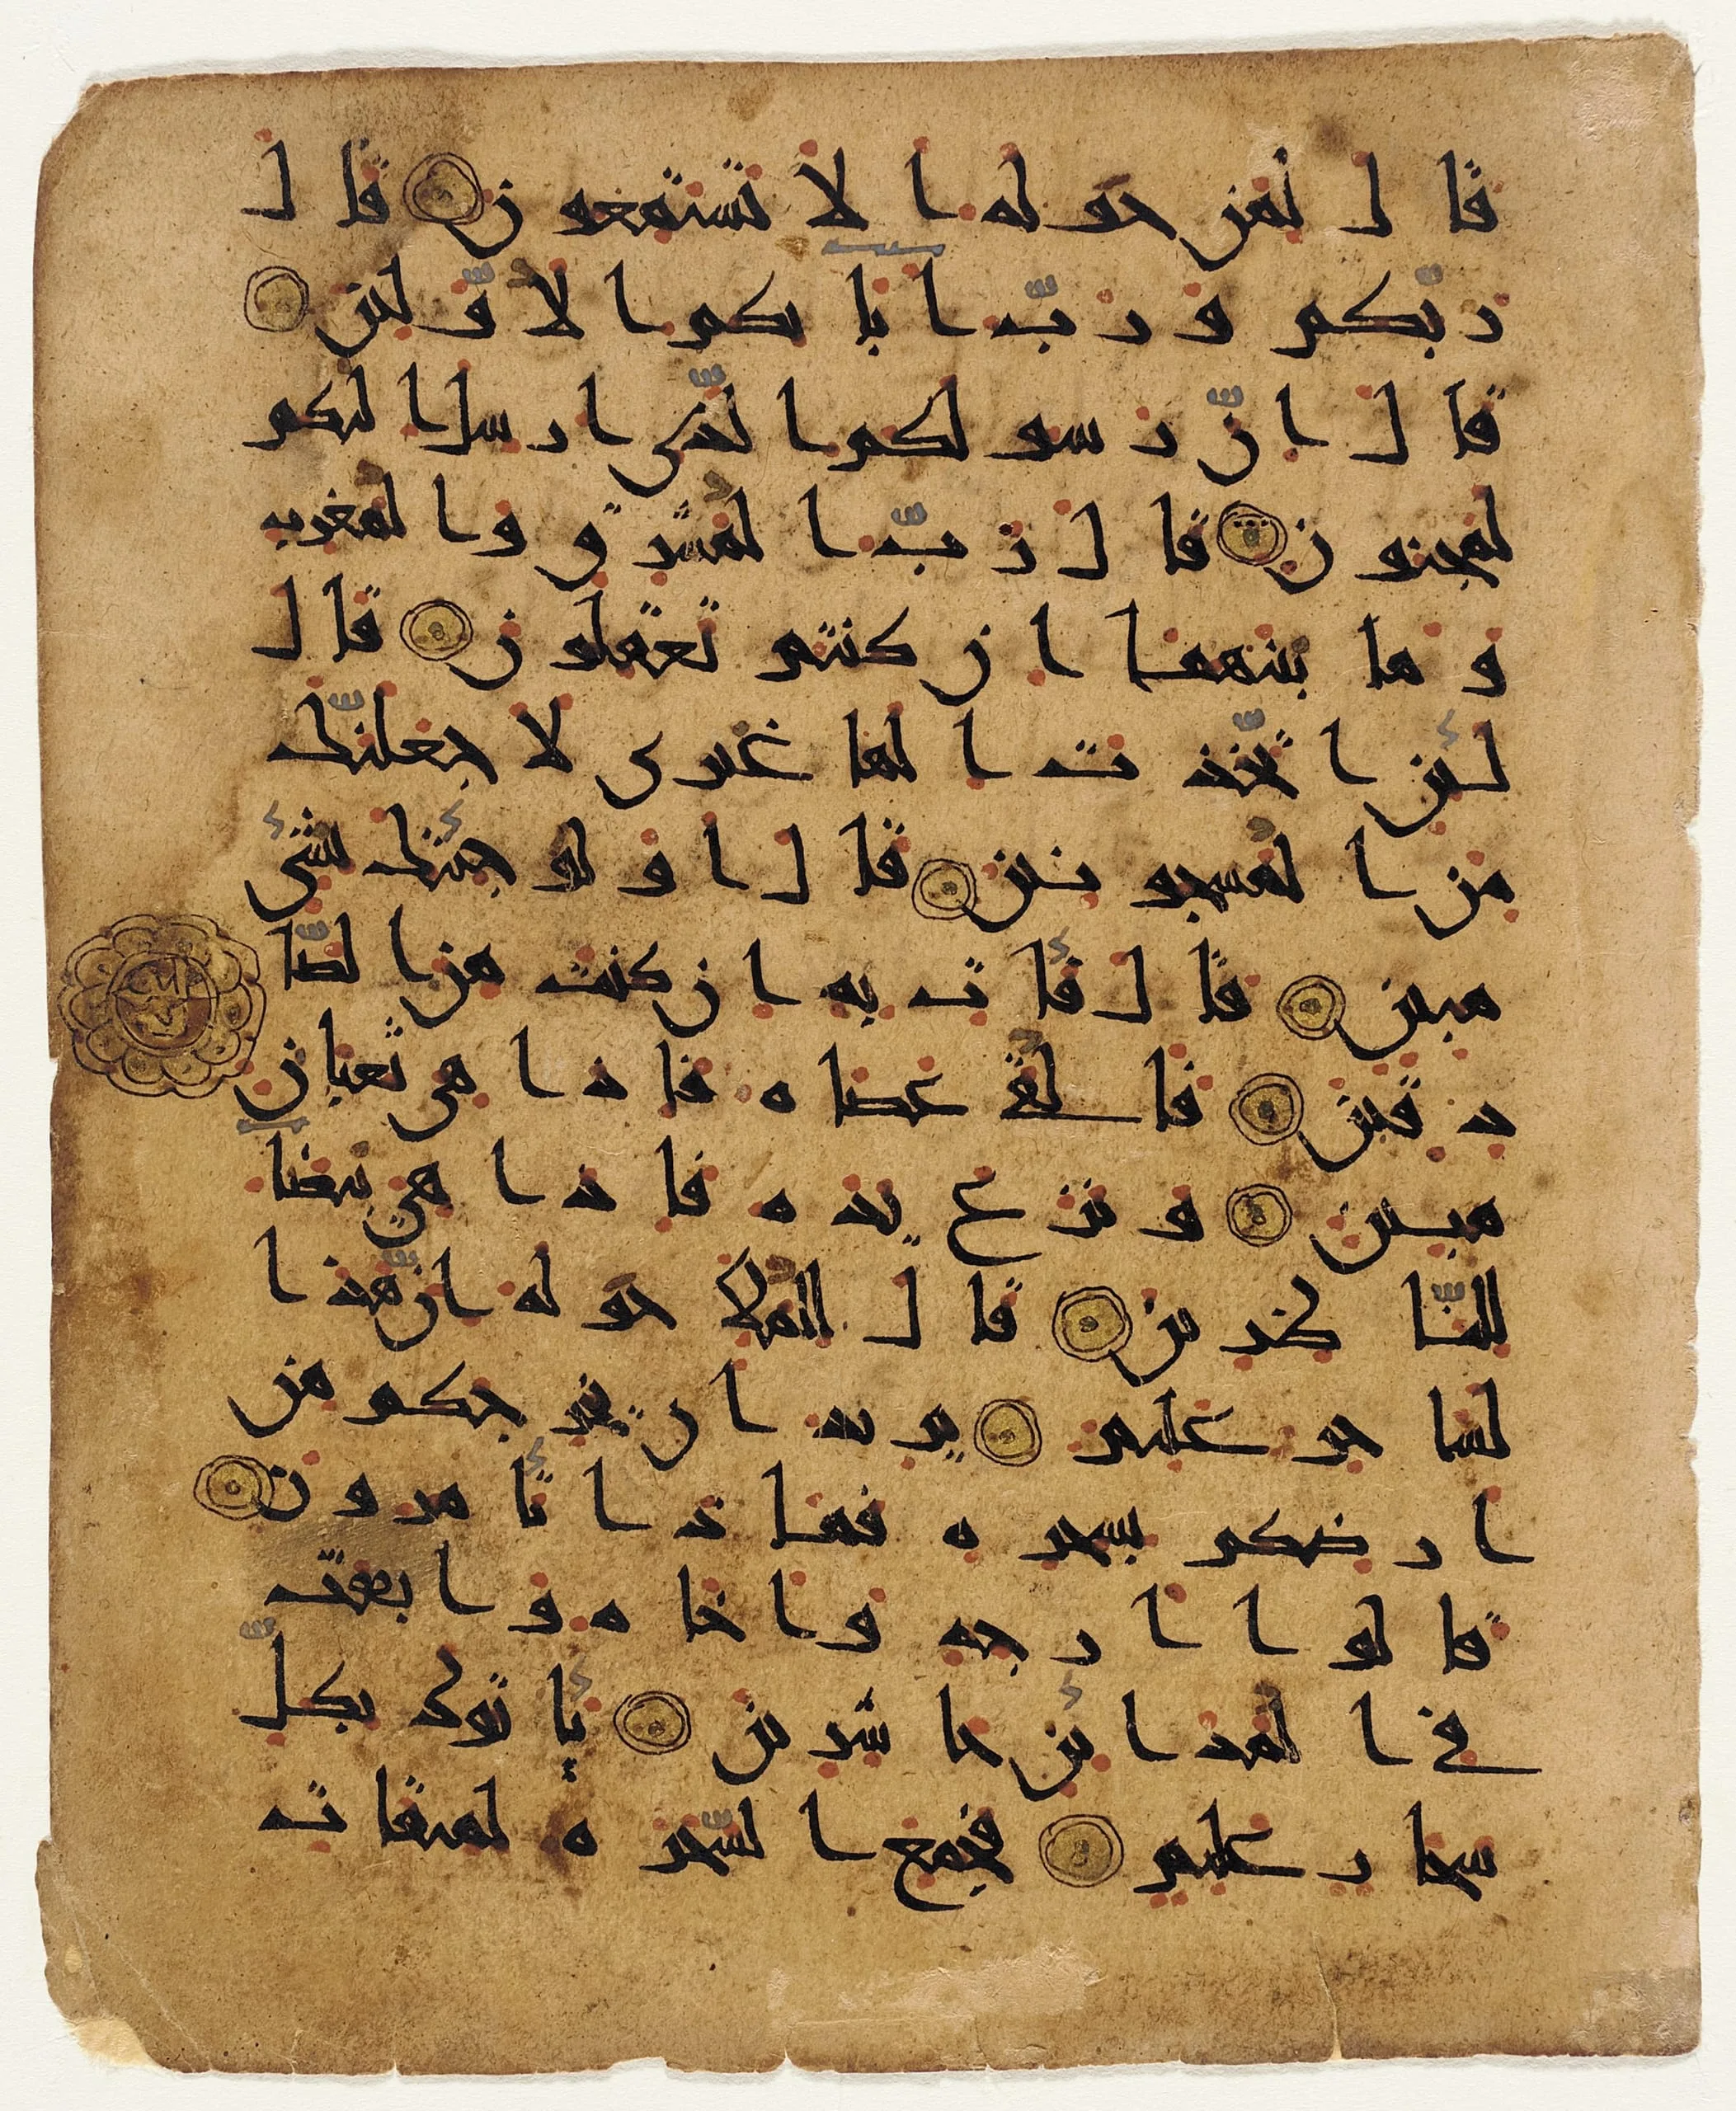 قال لمن حوله ا لا تستمعون قال
ربّكم و ربّ ابا ئكم الا وّلين
قال انّ رسو لكم الّذى ارسل اليكم
لمجنون قال ربّ المشرق والمغرب
و ما بينهما ان كنتم تعقلون قال
لئن اتّخذت الها غيرى لا جعلنّك
من المسجونين قال اولو جئتك بشئ
مبين قال فأت به ان كنت من الصّا
دقين فالقى عصاه فاذا هى ثعبان
مبين و نزع يده فاذا هى بيضا
للنّا ظرين قال للملا حوله انّ هذا
لسا حر عليم يريد ان يخرجكم من
ارضكم بسحره فما ذا تأمرون
قالوا ارجه واخاه وابعث
فى المدائن حاشرين يأتوك بكلّ
سحا ر عليم فجمع السّحره لميقات